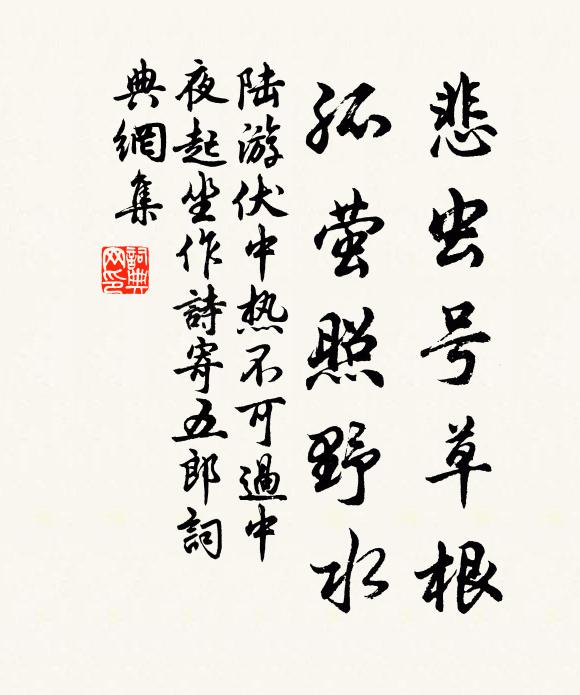 悲虫号草根
孤萤照野水
陆游伏中热不可過中
夜起坐作詩寄五郎詞
典網集
詞典网印